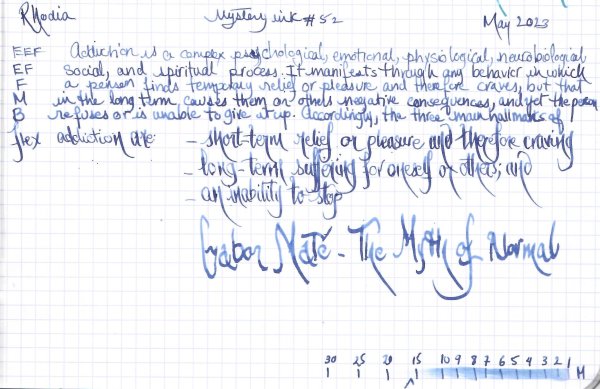 Rhodia Mystery ink #52 May 2023
EEF Addiction is a complex psychological, emotional, physiological, neurobiological
EF social, and spiritual process. It manifests through any behavior in which
F a person finds temporary relief or pleasure and therefore craves, but that
M in the long term causes them or others negative consequences, and yet the person
B refuses or is unable to give it up. Accordingly, the three main hallmarks of
flex addiction are: - short-term relief or pleasure and therefore craving
- long-term suffering for oneself or others; and
- an inability to stop
Gabor Maté - The Myth of Normal
30 25 20 15 10 9 8 7 6 5 4 3 2 1 M